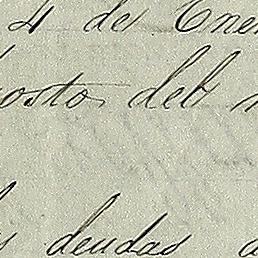 4 de Ener
osto deb
deudas